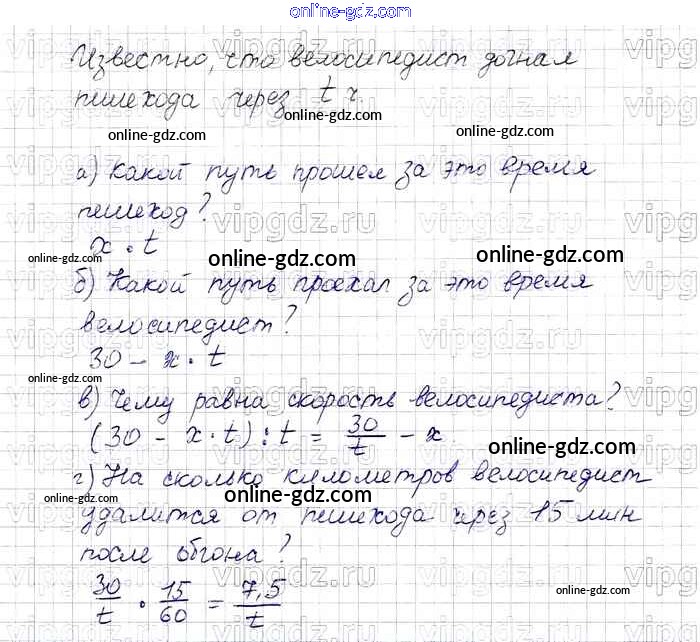 online-gdz.com
Известно, что велосипедист догнал
пешехода через t ч.
online-gdz.com
online-gdz.com
online-gdz.com
а) Какой путь прошел за это время
пешеход?
vipgdz.ru
x · t
online-gdz.com
online-gdz.com
online-gdz.com
б) Какой путь проехал за это время
велосипедист?
30 - x · t
online-gdz.com
online-gdz.com
в) Чему равна скорость велосипедиста?
(30 - x · t) : t = 30/t - x
online-gdz.com
г) На сколько километров велосипедист
online-gdz.com
online-gdz.com
удалится от пешехода через 15 мин
после обгона?
30/t · 15/60 = 7,5/t
online-gdz.com
online-gdz.com